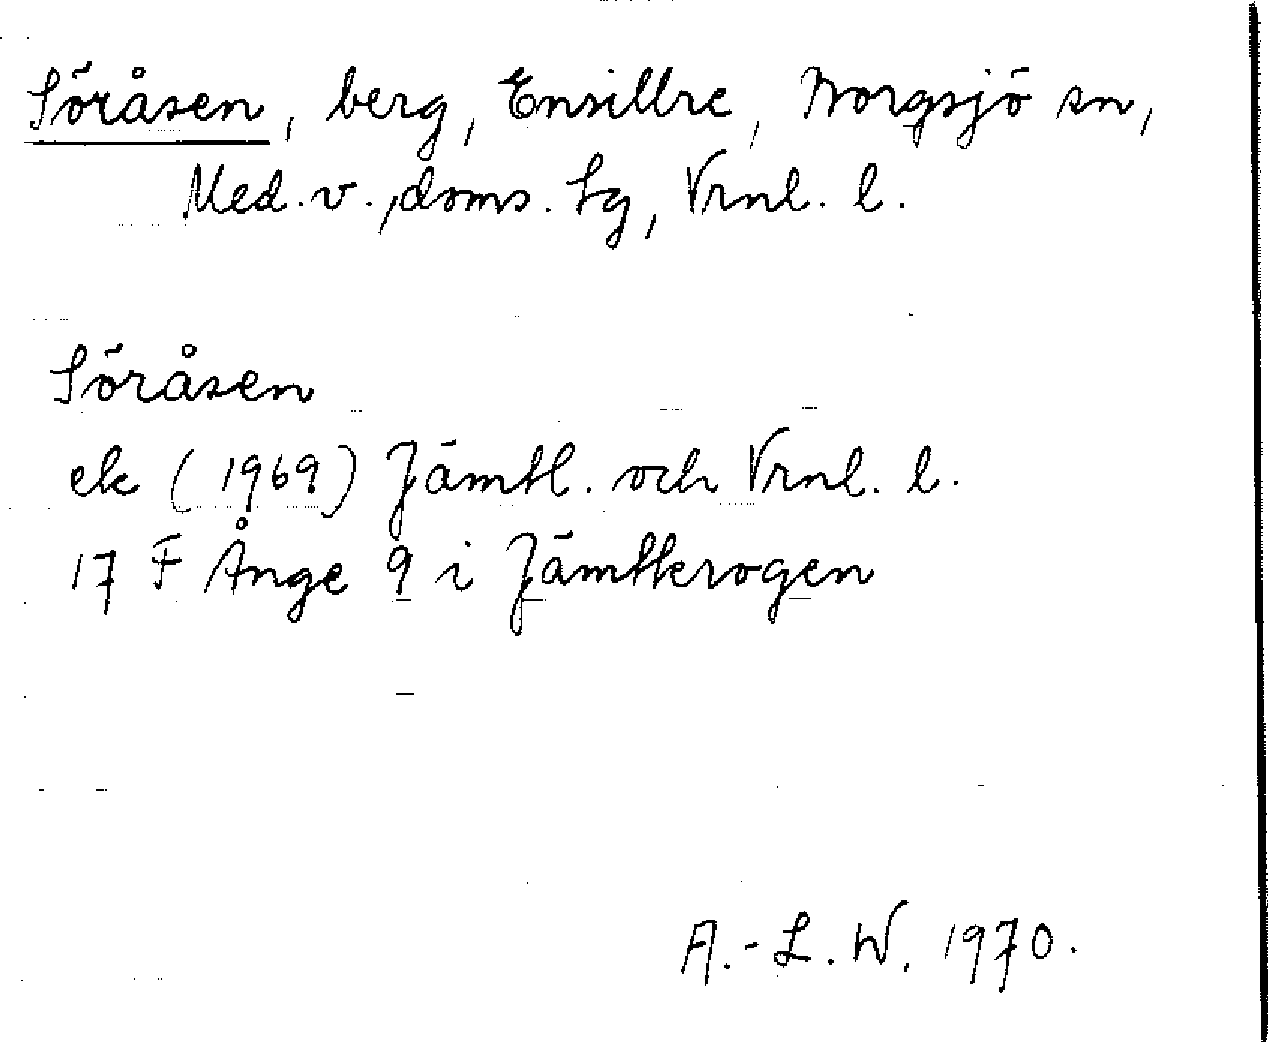 Söråsen, berg, Ensillre, Borgsjö sn,
Med. v. doms. tg, Vrnl. l.
Söråsen
ek (1969) Jämtl. och Vrnl. l.
17 F Ånge 9 i Jämtkrogen
A.-L. W. 1970.